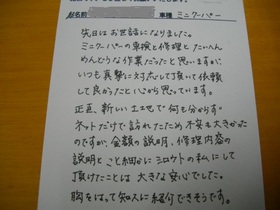 お名前 車種 ミニクーパー
先日はお世話になりました。
ミニクーパーの車検と修理とたいへん
めんどうな作業だったと思いますが、
いつも真摯に対応して頂いて依頼
して良かったと心から思っています。
正直、新しい土地で何も分からず、
ネットだけで訪れたため不安も大きかった
のですが、金額の説明、修理内容の
説明とこと細かにシロウトの私にして
頂けたことは大きな安心でした。
胸をはって知人に紹介できそうです。